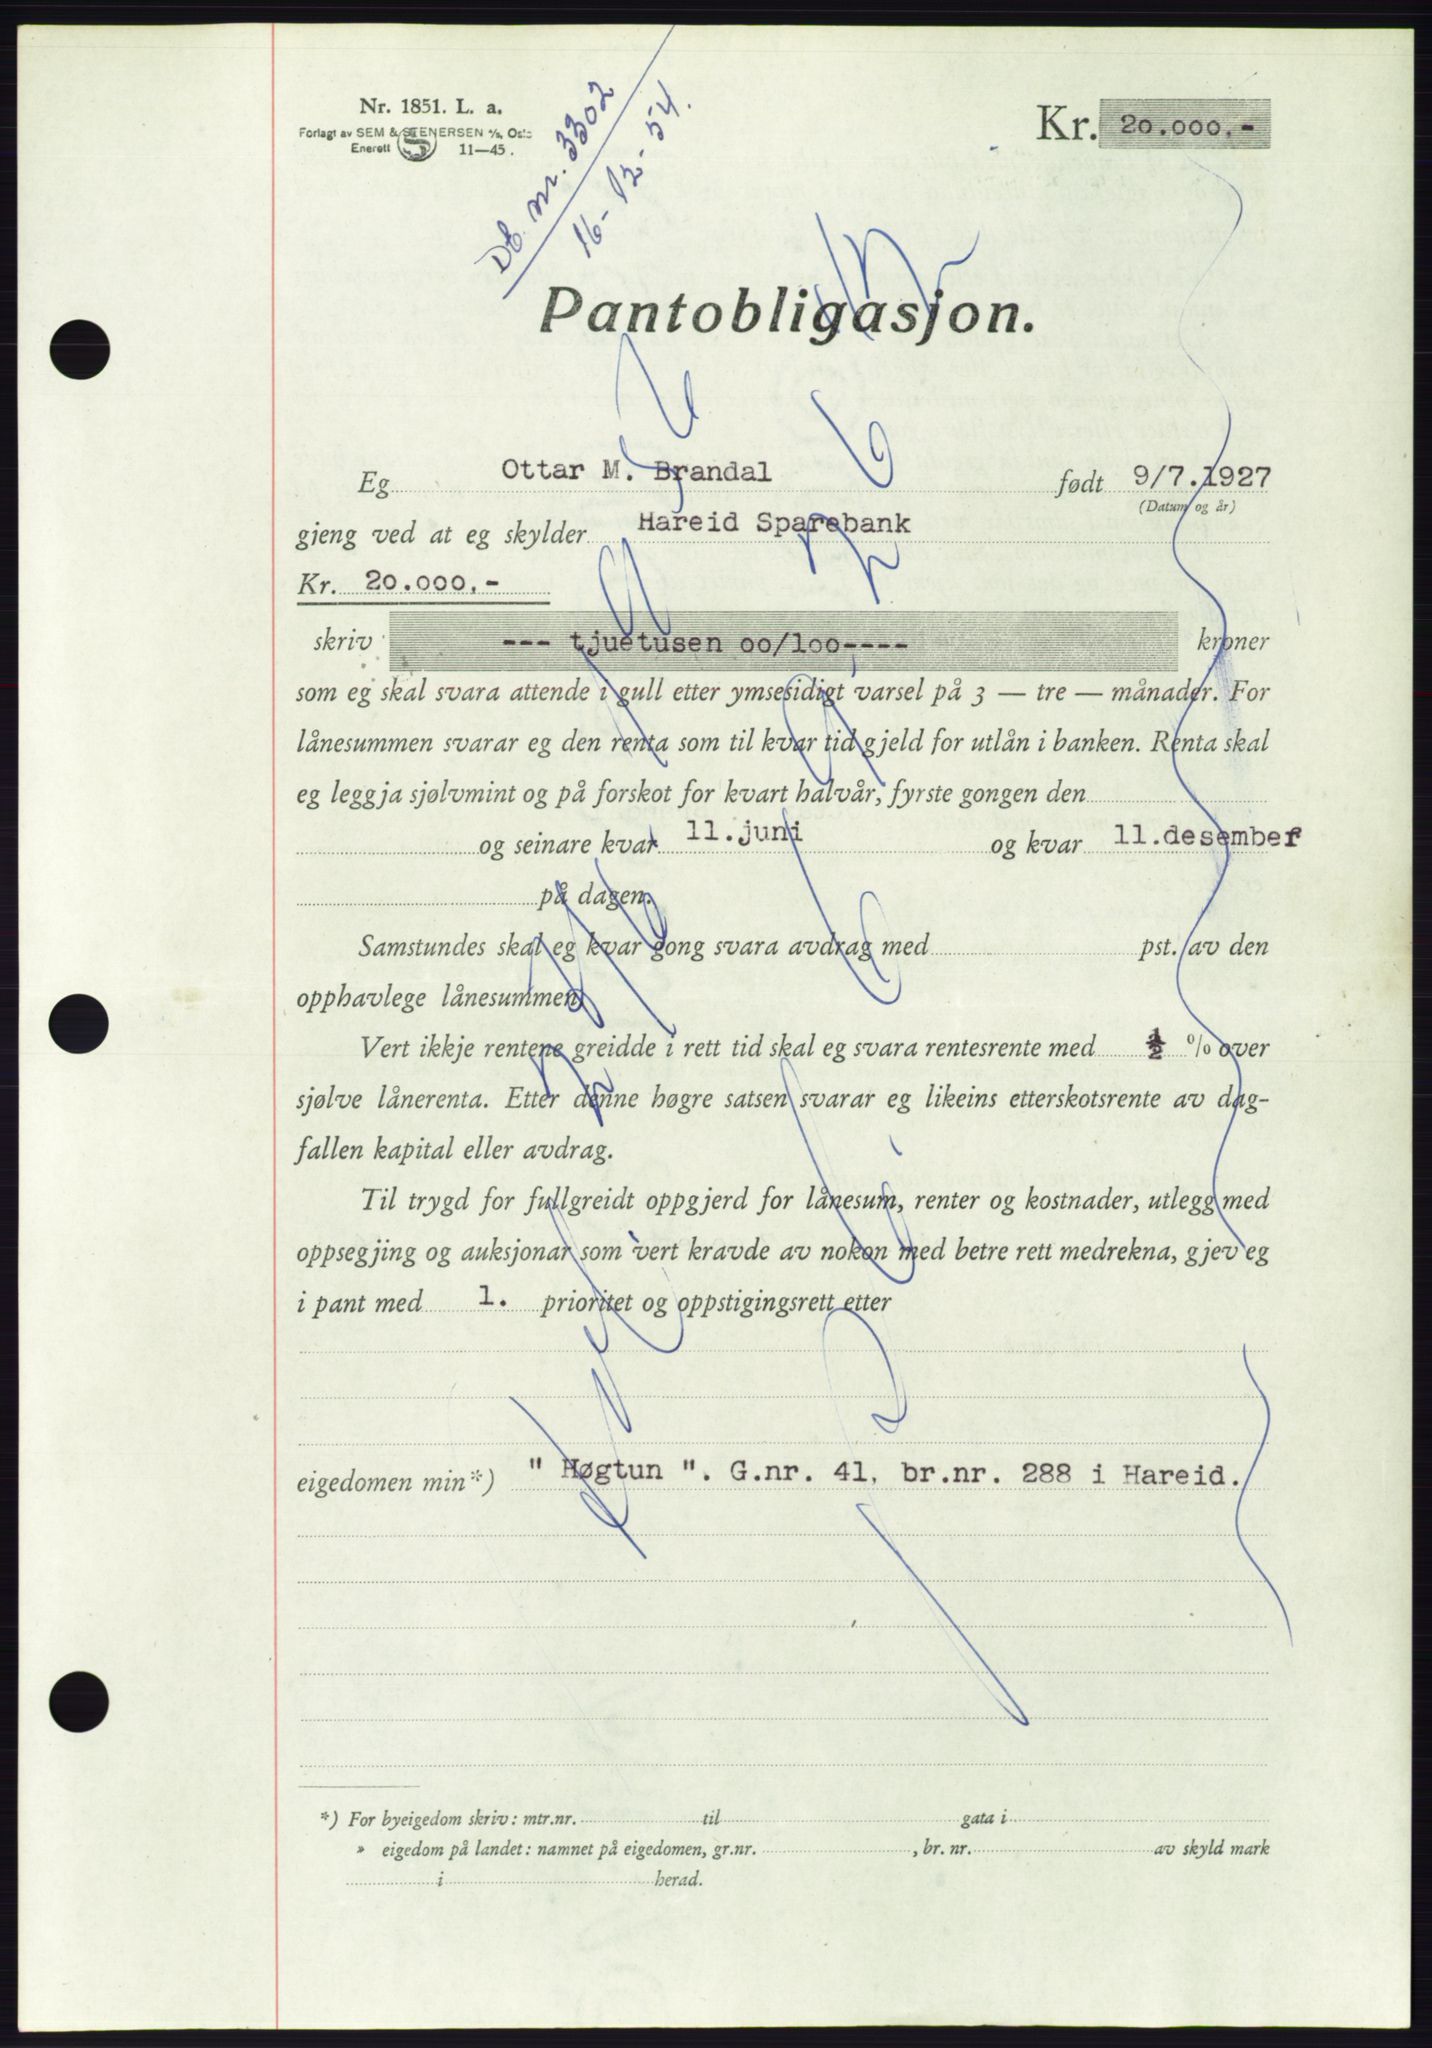 Nr. 1851. L. a.
Forlagt av SEM & STENERSEN A/S, Oslo
Enerett 11—45.
Db. nr. 3302
16-12-54.
Kr. 20.000,-
Pantobligasjon.
Eg Ottar M. Brandal født 9/7.1927
(Datum og år)
gjeng ved at eg skylder Hareid Sparebank
Kr. 20.000,-
skriv --- tjuetusen oo/loo---- kroner
som eg skal svara attende i gull etter ymsesidigt varsel på 3 — tre — månader. For
lånesummen svarar eg den renta som til kvar tid gjeld for utlån i banken. Renta skal
eg leggja sjølvmint og på forskot for kvart halvår, fyrste gongen den
og seinare kvar 11.juni og kvar 11.desember
på dagen.
Samstundes skal eg kvar gong svara avdrag med pst. av den
opphavlege lånesummen.
Vert ikkje rentene greidde i rett tid skal eg svara rentesrente med ½ % over
sjølve lånerenta. Etter denne høgre satsen svarar eg likeins etterskotsrente av dag-
fallen kapital eller avdrag.
Til trygd for fullgreidt oppgjerd for lånesum, renter og kostnader, utlegg med
oppsegjing og auksjonar som vert kravde av nokon med betre rett medrekna, gjev eg
i pant med 1. prioritet og oppstigingsrett etter
eigedomen min*) " Høgtun ". G.nr. 41, br.nr. 288 i Hareid.
*) For byeigedom skriv: mtr.nr. til gata i
» eigedom på landet: namnet på eigedomen, gr.nr. , br. nr. av skyld mark
i herad.